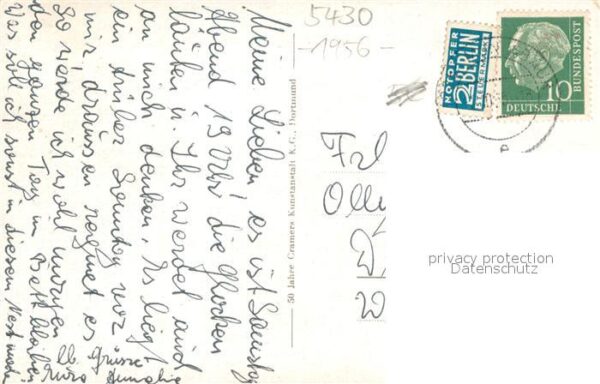 Meine Lieben es ist Samstag
Abend 19 Uhr die Glocken
läuten u. Ihr werdet auch
an mich denken. Es liegt
ein trüber Sonntag vor
mir, draussen regnet es
So werde ich wohl morgen
den ganzen Tag im Bett bleiben
Was soll ich sonst in diesem Nest machen
Lb. Grüsse
Eure
50 Jahre Cramers Kunstanstalt K.G., Dortmund
5430
-1956-
NOTOPFER
2 BERLIN
STEUERMARKE
DEUTSCHE
BUNDESPOST
10
Frl
Olli
D
W
privacy protection
Datenschutz